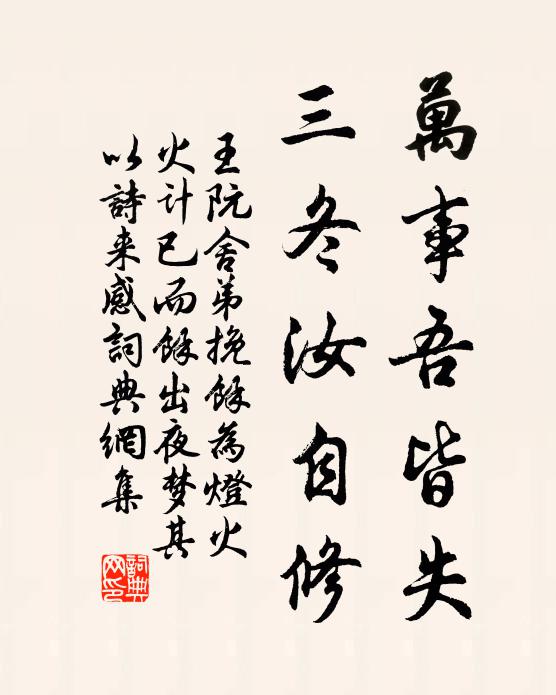 萬事吾皆失
三冬汝自修
王阮舍弟挽餘為燈火
火计已而餘出夜梦其
以詩来感詞典網集
詞典网印